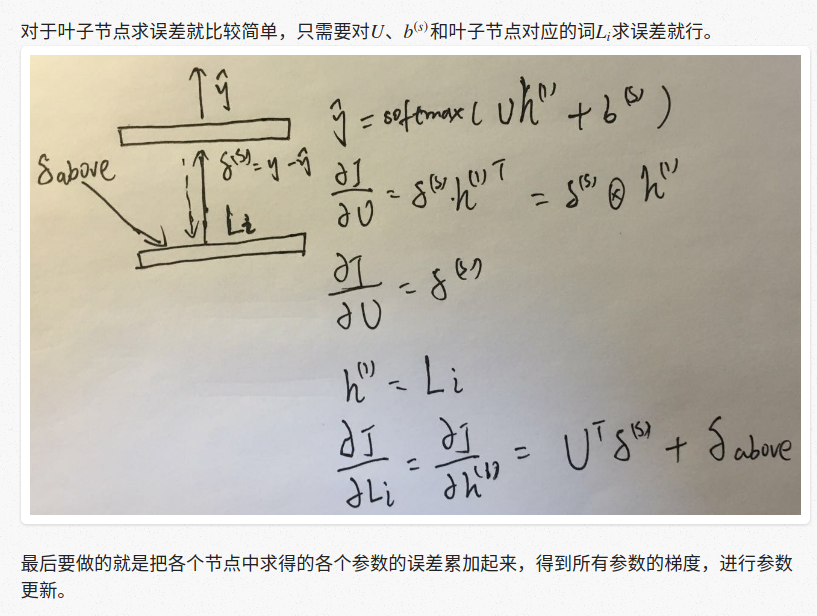 对于叶子节点求误差就比较简单，只需要对U、b⁽ˢ⁾和叶子节点对应的词Lᵢ求误差就行。
ŷ
δ above
δ⁽ˢ⁾ = y - ŷ
Li
ŷ = softmax( Uh⁽¹⁾ + b⁽ˢ⁾ )
∂J/∂U = δ⁽ˢ⁾·h⁽¹⁾ᵀ = δ⁽ˢ⁾ ⊗ h⁽¹⁾
∂J/∂U = δ⁽ˢ⁾
h⁽¹⁾ = Li
∂J/∂Li = ∂J/∂h⁽¹⁾ = Uᵀδ⁽ˢ⁾ + δ above
最后要做的就是把各个节点中求得的各个参数的误差累加起来，得到所有参数的梯度，进行参数
更新。